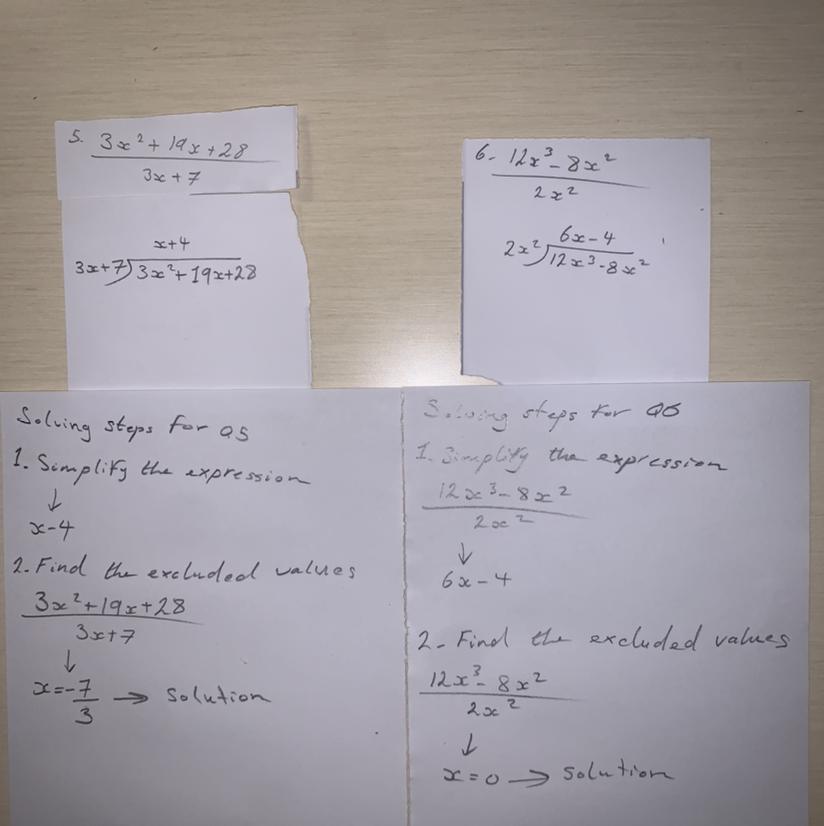 5. 3x² + 19x + 28
3x + 7
x + 4
3x + 7 ) 3x² + 19x + 28
6- 12x³ - 8x²
2x²
6x - 4
2x² ) 12x³ - 8x²
Solving steps for Q5
1. Simplify the expression
↓
x - 4
2. Find the excluded values
3x² + 19x + 28
3x + 7
↓
x = -7
3 → solution
Solving steps for Q6
1. Simplify the expression
12x³ - 8x²
2x²
↓
6x - 4
2 - Find the excluded values
12x³ - 8x²
2x²
↓
x = 0 → solution